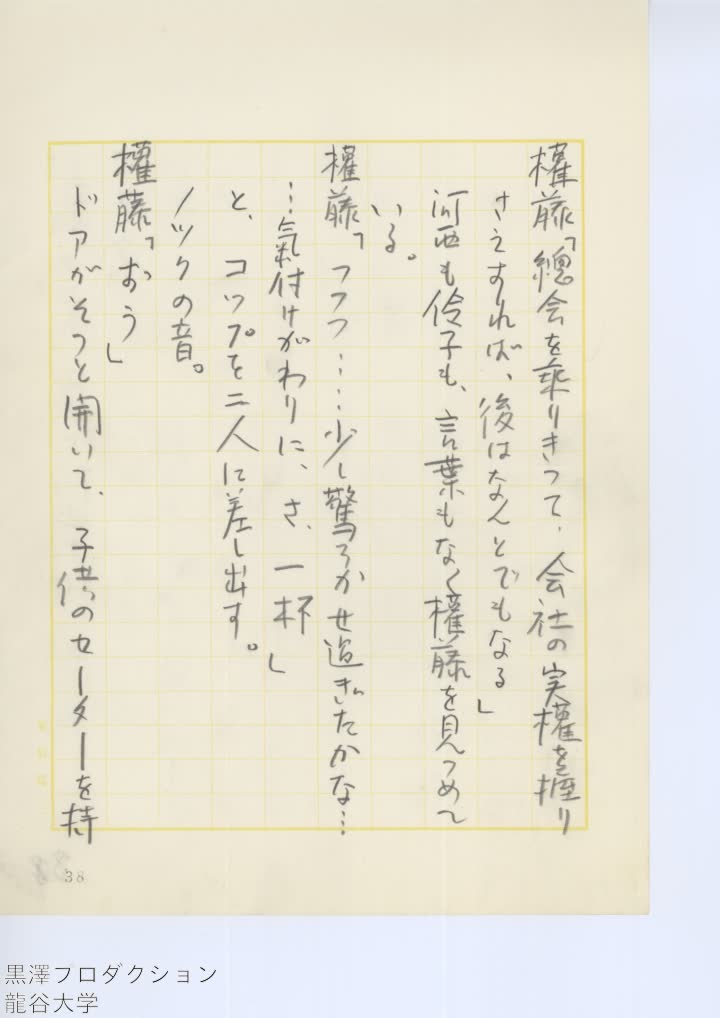 權藤「總会を乘りきって、会社の実權を握り
さえすれば、後はなんとでもなる」
河西も伶子も、言葉もなく權藤を見つめて
いる。
權藤「フフフ……少し驚ろかせ過ぎたかな…
…氣付けがわりに、さ、一杯」
と、コップを二人に差し出す。
ノックの音。
權藤「おう」
ドアがそっと開いて、子供のセーターを持
38
黒澤プロダクション
龍谷大学